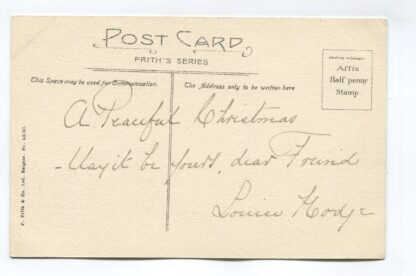 POST CARD
FRITH'S SERIES
This Space may be used for Communication.
The Address only to be written here
Affix
Half penny
Stamp.
A Peaceful Christmas
May it be yours, dear Friend
Louise Hodge
F. Frith & Co. Ltd. Reigate. No.